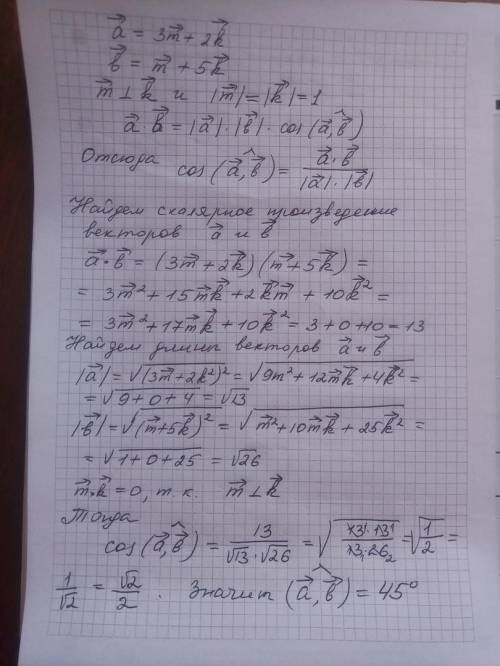 a⃗ = 3m⃗ + 2k⃗
b⃗ = m⃗ + 5k⃗
m⃗ ⊥ k⃗ и |m⃗| = |k⃗| = 1
a⃗ · b⃗ = |a⃗| · |b⃗| · cos(a⃗,^b⃗)
Отсюда cos(a⃗,^b⃗) = a⃗ · b⃗ / |a⃗| · |b⃗|
Найдем скалярное произведение
векторов a⃗ и b⃗
a⃗ · b⃗ = (3m⃗ + 2k⃗)(m⃗ + 5k⃗) =
= 3m⃗² + 15m⃗k⃗ + 2k⃗m⃗ + 10k⃗² =
= 3m⃗² + 17m⃗k⃗ + 10k⃗² = 3 + 0 + 10 = 13
Найдем длины векторов a⃗ и b⃗
|a⃗| = √(3m⃗ + 2k²)² = √9m² + 12m⃗k⃗ + 4k⃗² =
= √9 + 0 + 4 = √13
|b⃗| = √(m⃗ + 5k⃗)² = √m⃗² + 10m⃗k⃗ + 25k⃗² =
= √1 + 0 + 25 = √26
m⃗ · k⃗ = 0, т.к. m⃗ ⊥ k⃗
Тогда
cos(a⃗,^b⃗) = 13 / √13 · √26 = √13 · 13 1 / 13 · 26 2 = √1/2 =
1/√2 = √2/2 . Значит (a⃗,^b⃗) = 45°